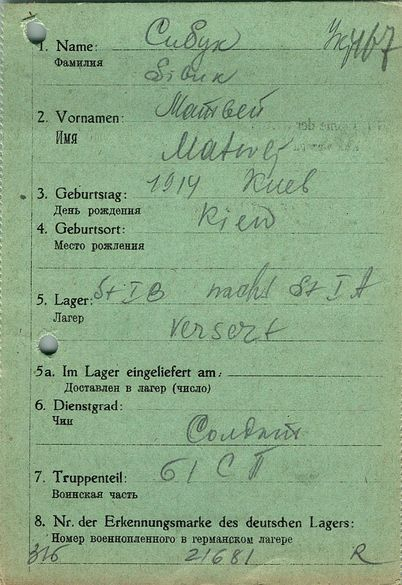 1. Name: Сибук
Фамилия
Sibuk
2. Vornamen: Матвей
Имя
Matvej
3. Geburtstag: 1914 Киев
День рождения
Kiew
4. Geburtsort:
Место рождения
5. Lager: St I B nach St I A
Лагер
versezt
5a. Im Lager eingeliefert am:
Доставлен в лагер (число)
6. Dienstgrad:
Чин
Солдат
7. Truppenteil: 61 С П
Воинская часть
8. Nr. der Erkennungsmarke des deutschen Lagers:
Номер военнопленного в германском лагере
316 21681 R